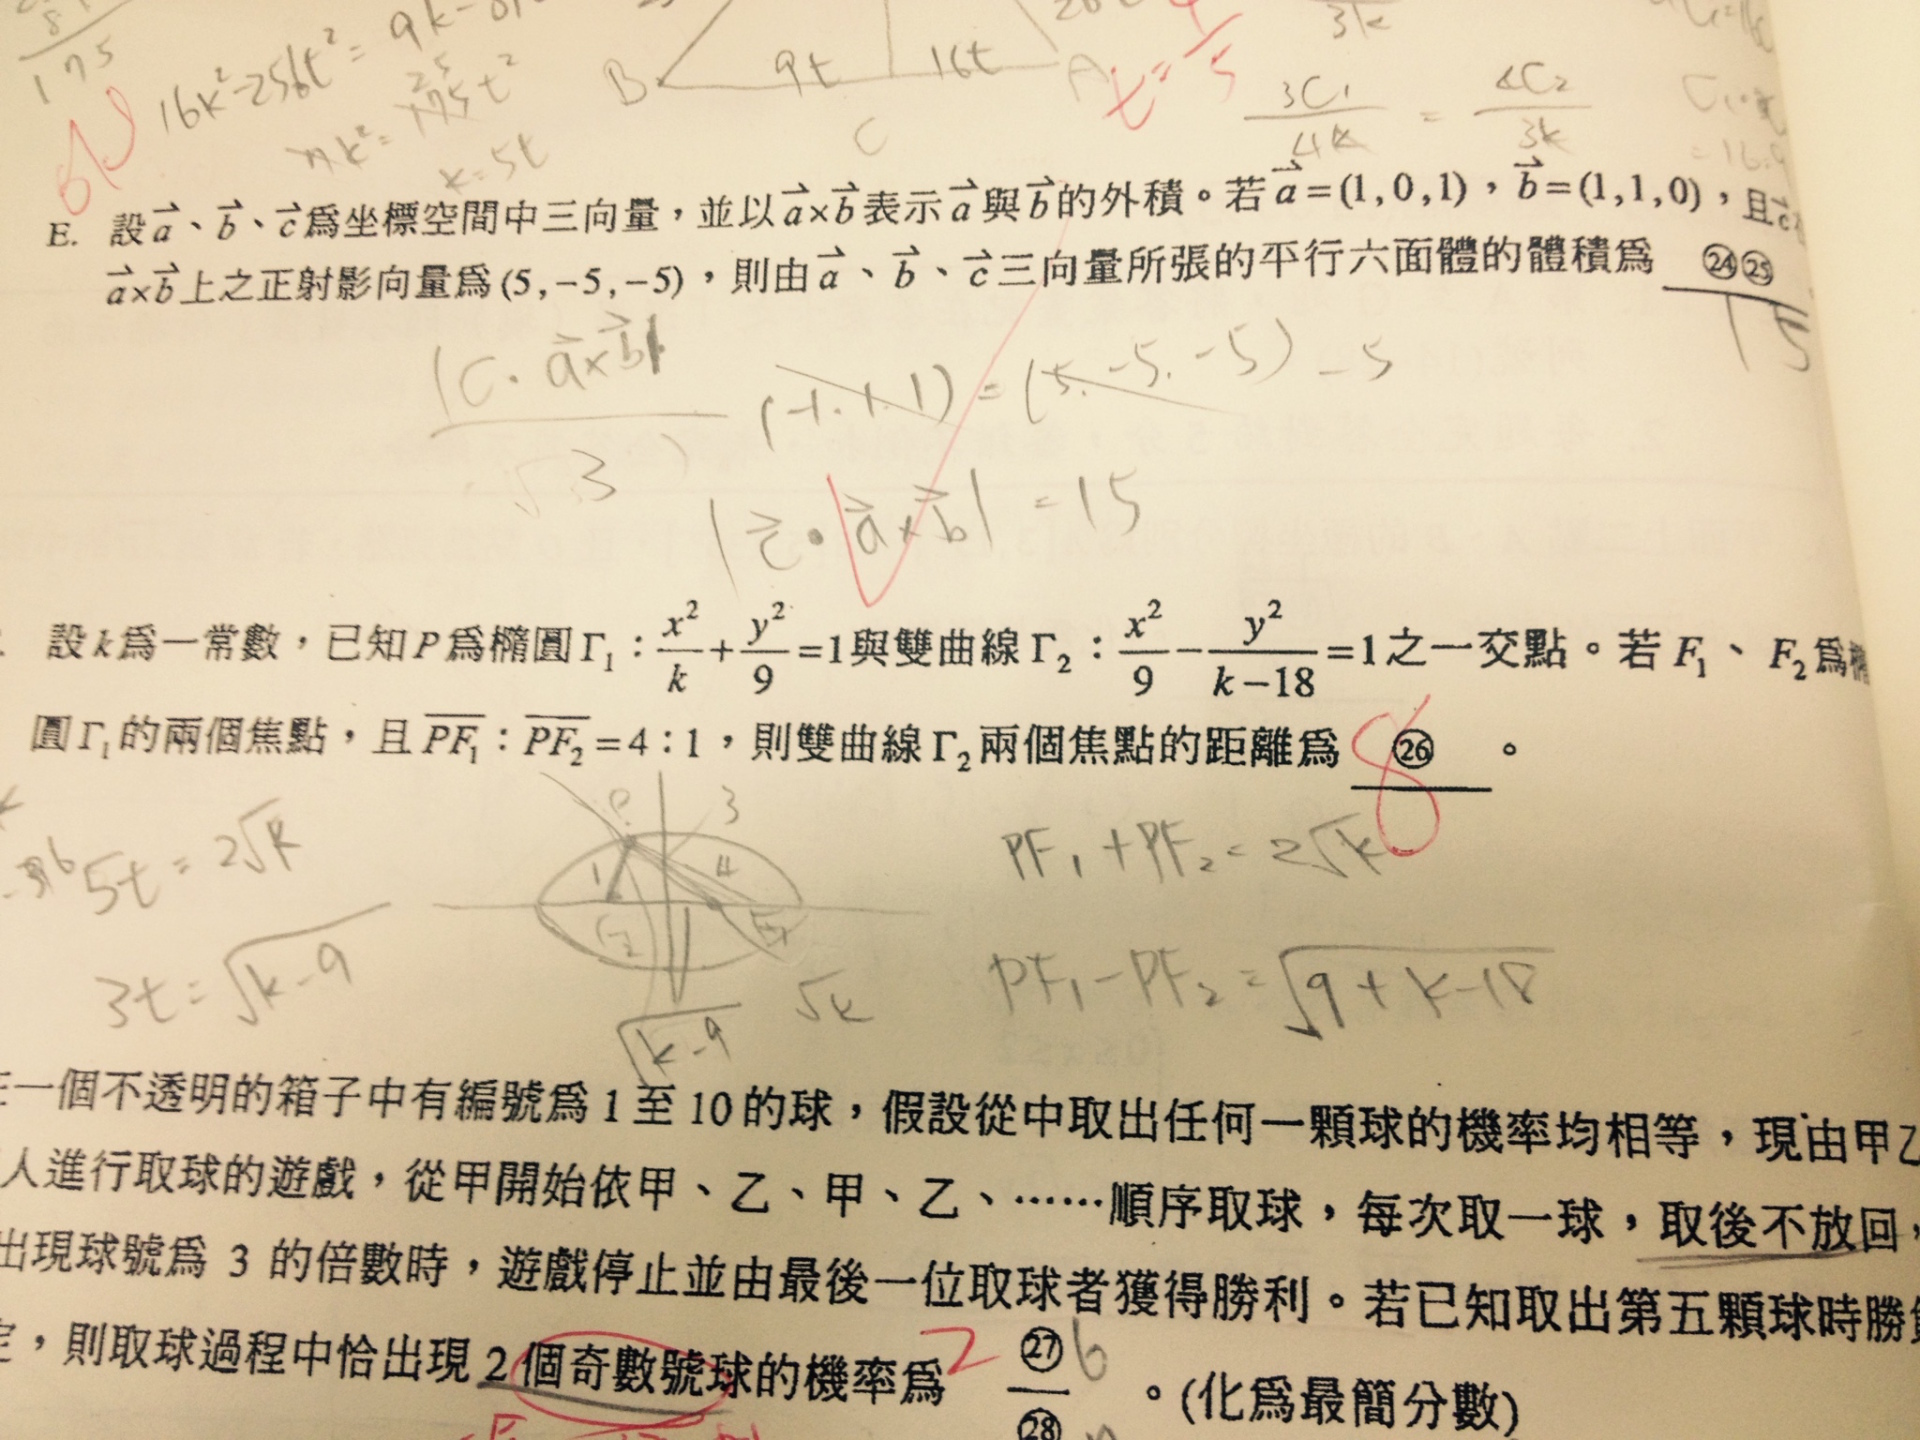 175
16k²-256t²=9k-81
25
175t²
7k²=
k=5t
B
9t
16t
A
C
t=4/5
3C₁/4k = 4C₂/3k
3k
E. 設a⃗、b⃗、c⃗為坐標空間中三向量，並以a⃗×b⃗表示a⃗與b⃗的外積。若a⃗=(1,0,1)，b⃗=(1,1,0)，且c⃗在
a⃗×b⃗上之正射影向量為(5,-5,-5)，則由a⃗、b⃗、c⃗三向量所張的平行六面體的體積為 ㉔㉕
15
|c·a⃗×b⃗|/√3 (-1.1.1)=(5.-5.-5) -5
|c⃗·|a⃗×b⃗| =15
設k為一常數，已知P為橢圓Γ₁：x²/k+y²/9=1與雙曲線Γ₂：x²/9-y²/(k-18)=1之一交點。若F₁、F₂為橢
圓Γ₁的兩個焦點，且PF₁：PF₂=4：1，則雙曲線Γ₂兩個焦點的距離為 ㉖ 。
8
5t=2√k
P
3
1
4
F₂
F₁
PF₁+PF₂=2√k
3t=√(k-9)
√(k-9)
√k
PF₁-PF₂=√(9+k-18)
在一個不透明的箱子中有編號為1至10的球，假設從中取出任何一顆球的機率均相等，現由甲乙
人進行取球的遊戲，從甲開始依甲、乙、甲、乙、……順序取球，每次取一球，取後不放回，
出現球號為 3 的倍數時，遊戲停止並由最後一位取球者獲得勝利。若已知取出第五顆球時勝負
定，則取球過程中恰出現2個奇數號球的機率為 ㉗/㉘ 。(化為最簡分數)
2
6